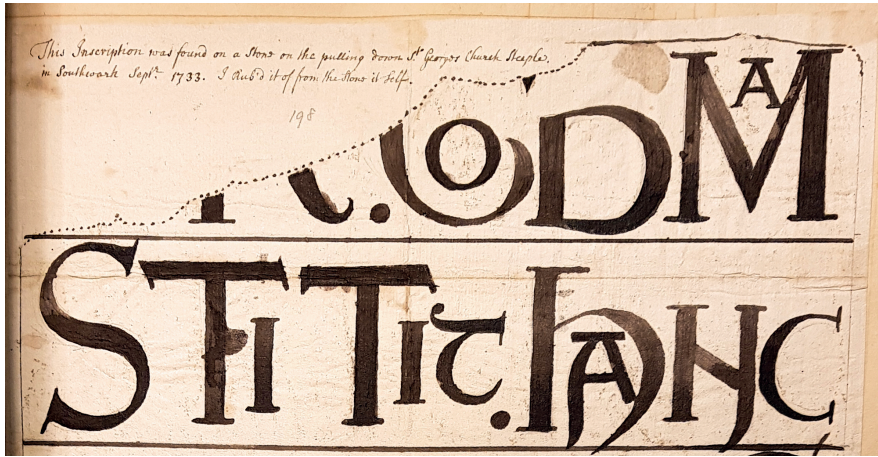 This Inscription was found on a Stone on the pulling down St Georges Church Steeple,
in Southwark Septr 1733. I Rub'd it of from the Stone it Self.
198
. UODMA
STFITIT.hANC